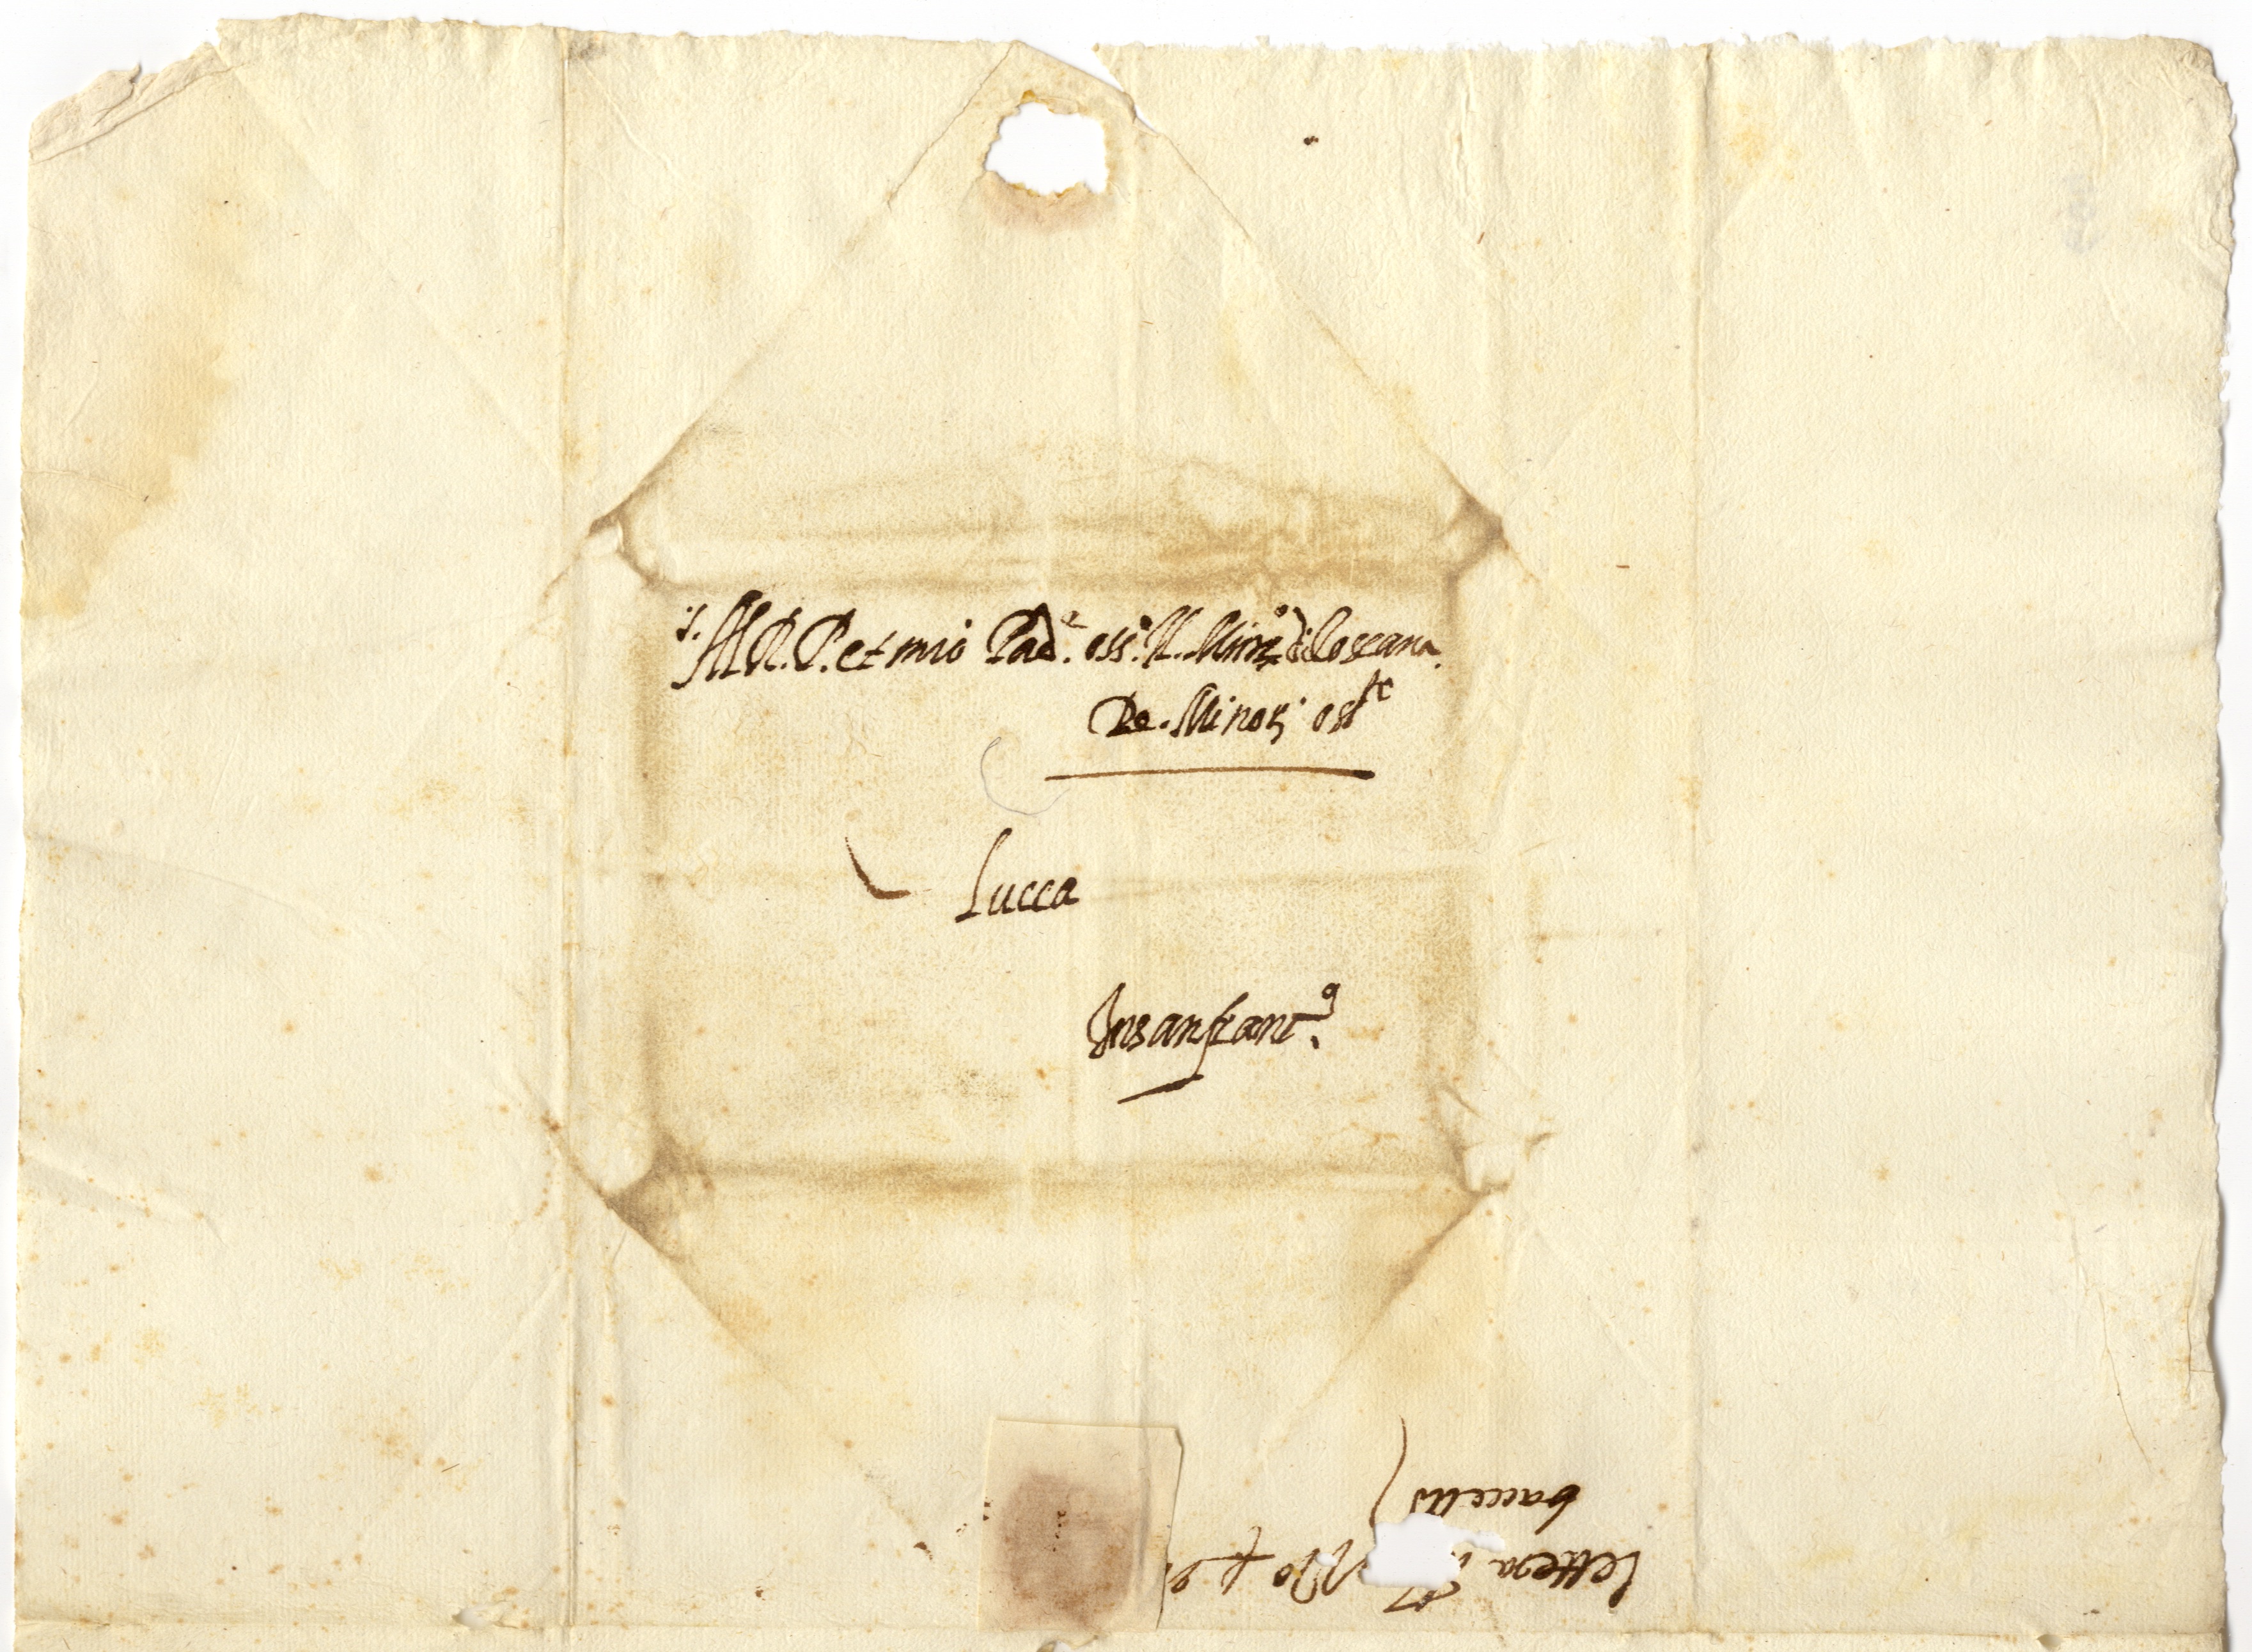 Al M.R.P. et mio Pad.e oss.o Il Minro di Toscana.
De. Minori oss.ti
Lucca
In san franc.o
lettera
baccelli